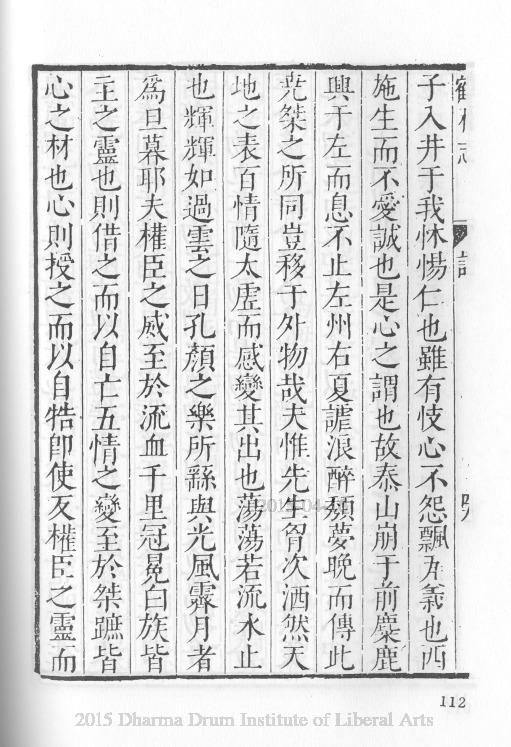 子入井于我怵惕仁也雖有忮心不怨飄瓦義也四
施生而不愛誠也是心之謂也故泰山崩于前麋鹿
興于左而息不止左州右夏謔浪醉頹夢晚而傳此
堯桀之所同豈移于外物哉夫惟先生胷次洒然天
地之表百情隨太虛而感變其出也蕩蕩若流水止
也輝輝如過雲之日孔顏之樂所繇與光風霽月者
爲旦暮耶夫權臣之威至於流血千里冠冕白族皆
主之靈也則借之而以自亡五情之變至於桀蹠皆
心之材也心則授之而以自牿卽使反權臣之靈而
112
2015 Dharma Drum Institute of Liberal Arts